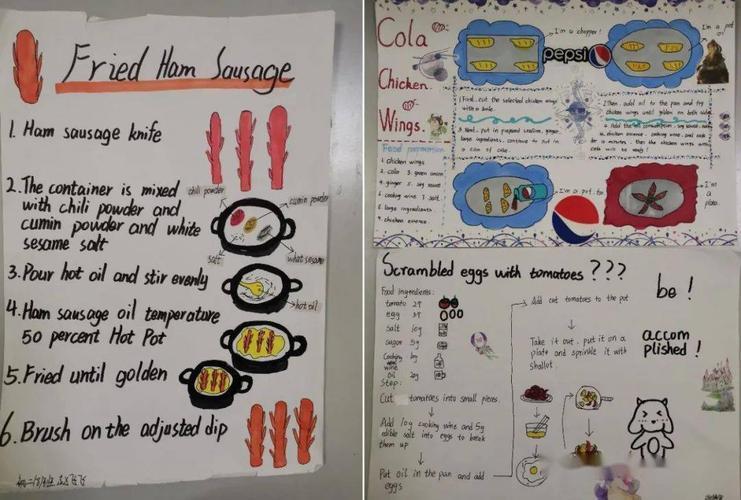 Fried Ham Sausage
1. Ham sausage knife
2. The container is mixed
with chili powder and
cumin powder and white
sesame salt
chili powder
cumin powder
salt
3. Pour hot oil and stir evenly
hot oil
4. Ham sausage oil temperature
50 percent Hot Pot
5. Fried until golden
6. Brush on the adjusted dip
Cola
Chicken
Wings.
I'm a chopper!
pepsi
I'm a pot
Food
1. chicken wings
2. cola 3. green onion
4. ginger 5. soy sauce
6. cooking wine 7. salt
8. large ingredients
9. chicken essence.
1. First, cut the selected chicken wings
with a knife.
2. Then, add oil to the pan and fry
chicken wings until golden on both sides
3. Next, put in prepared
large ingredients, continue to put in
a can of cola
I'm a pot, too
I'm
a
plate.
Scrambled eggs with tomatoes ???
Food ingredients:
tomato 2
egg 3
salt 10g
sugar 5g
Cooking
wine
oil 20g
Step:
Cut tomatoes into small pieces.
Add 10g cooking wine and 5g
edible salt into eggs to break
them up
Put oil in the pan and add
eggs
Add cut tomatoes to the pot
Take it out, put it on a
plate and sprinkle it with
shallot.
be!
accom
plished!